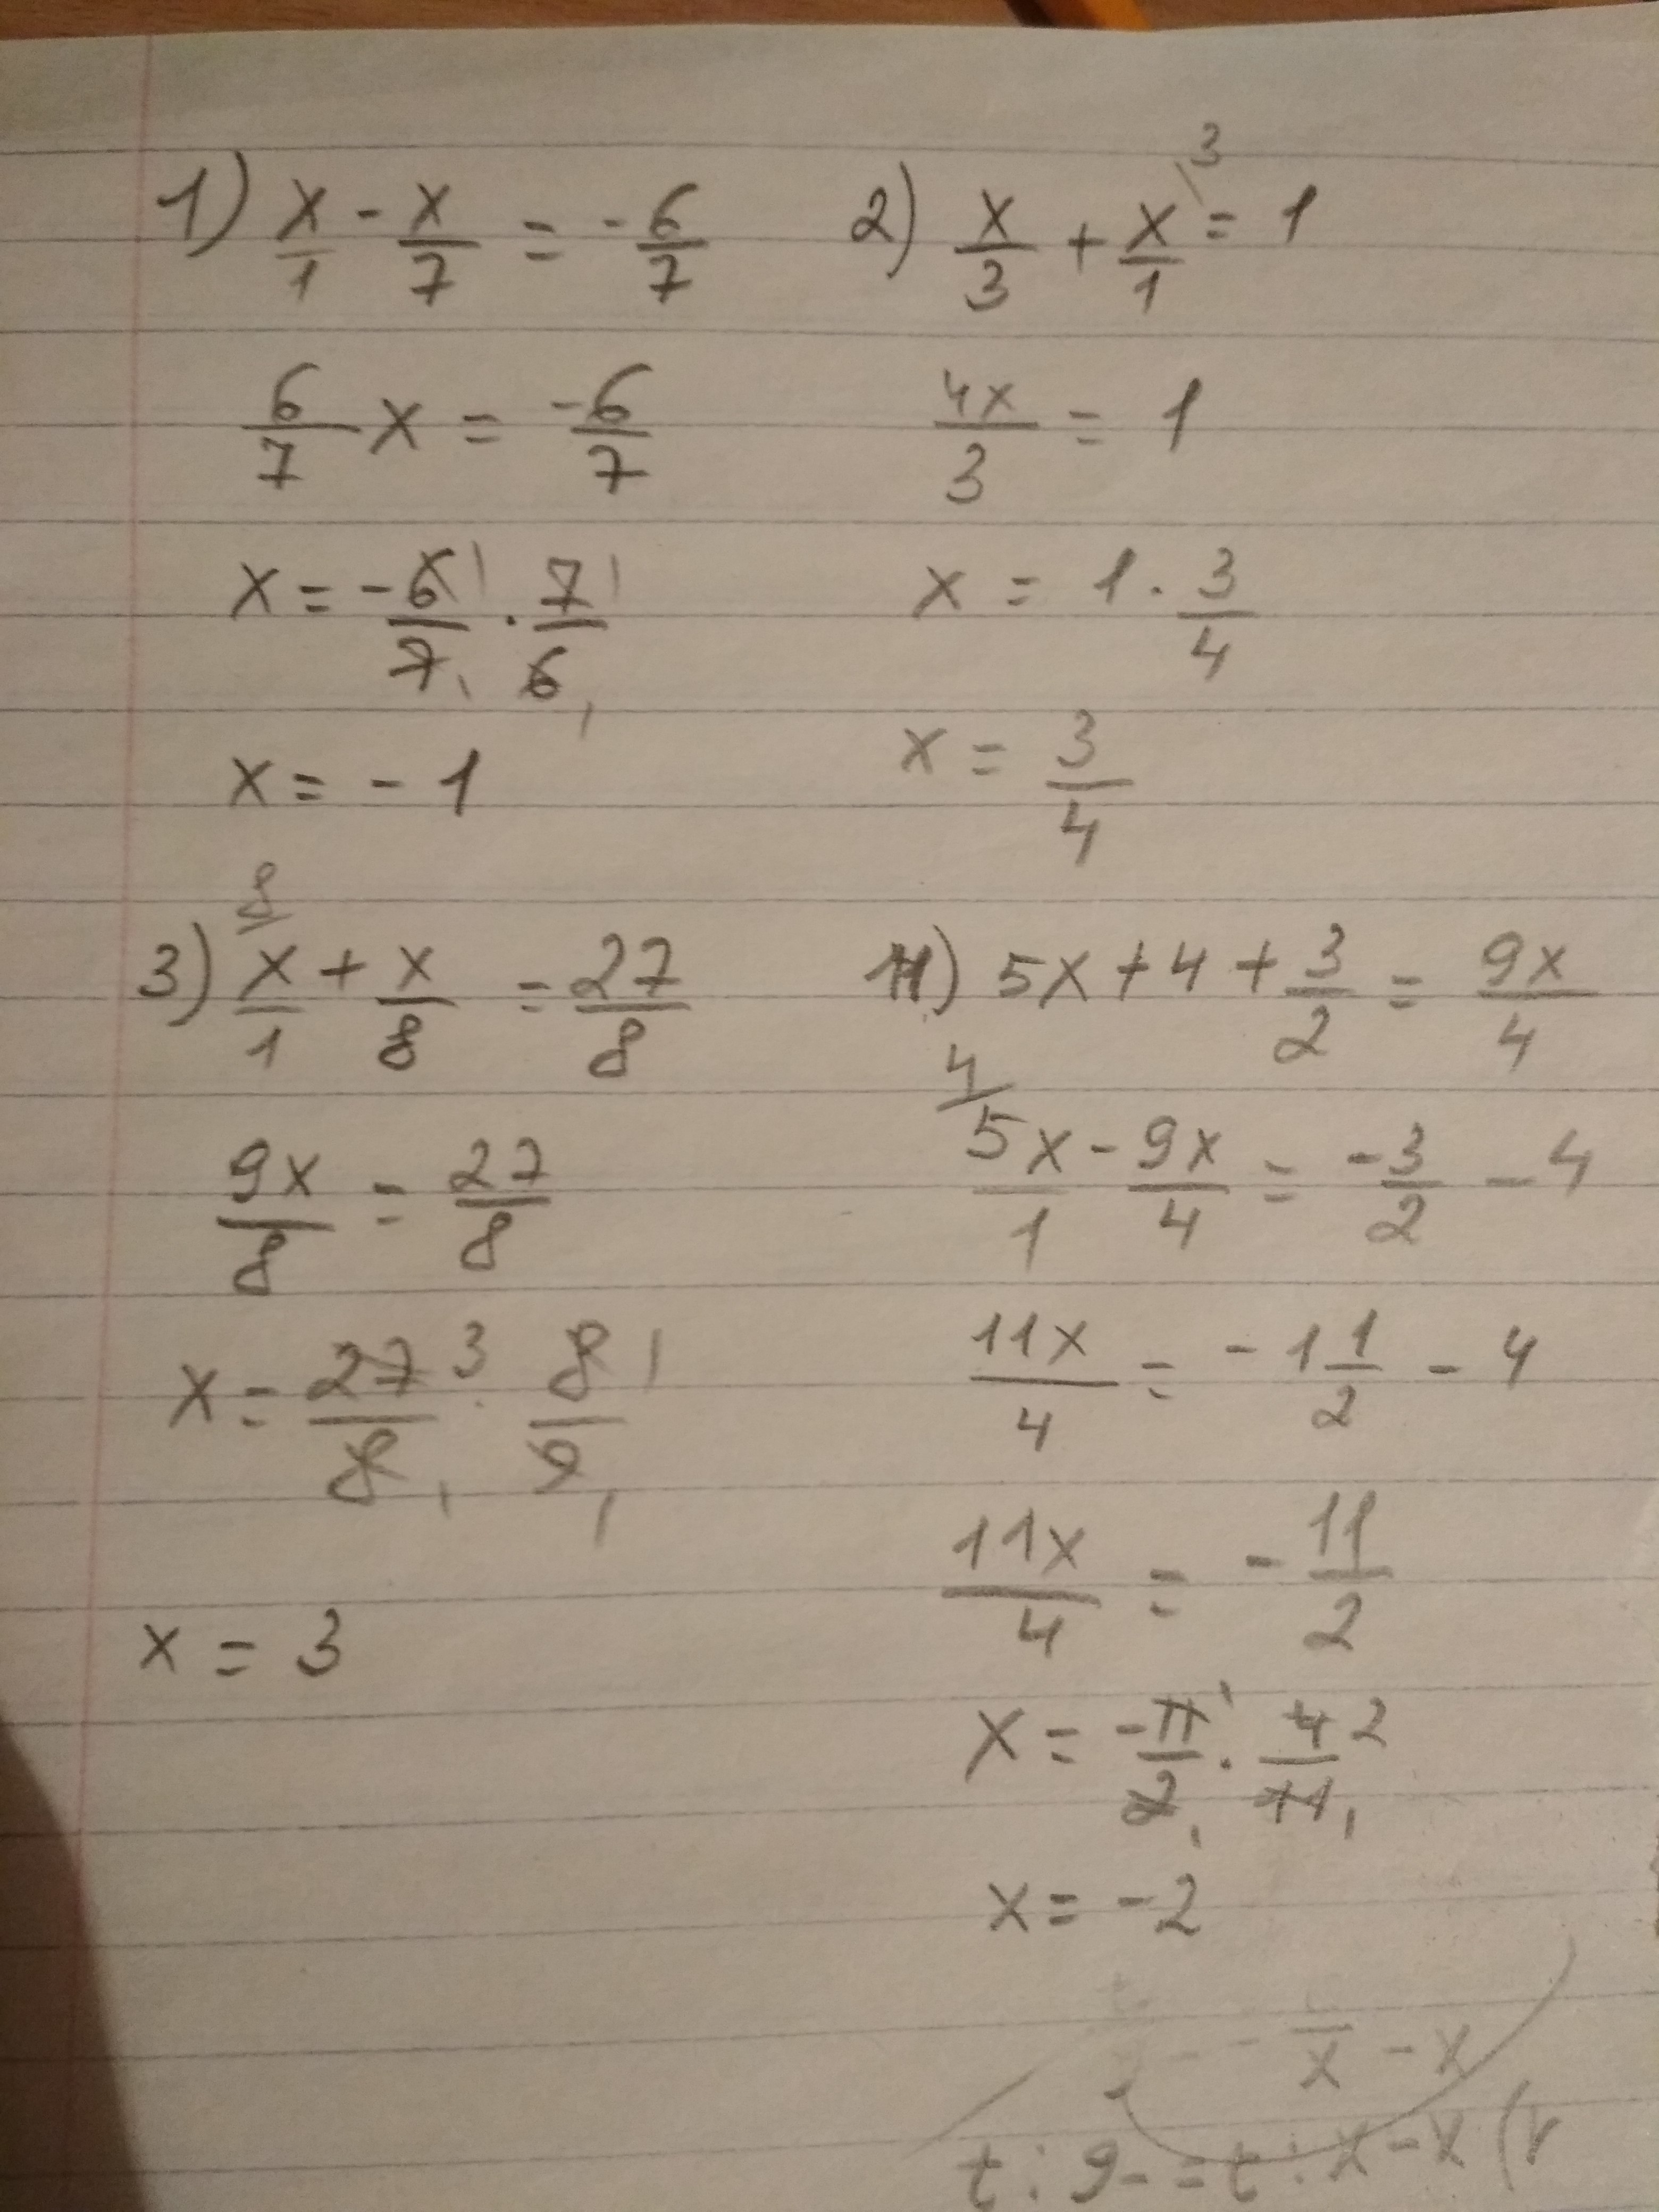 1) x/1 - x/7 = -6/7
6/7 x = -6/7
x = -6/7 · 7/6
x = -1
2) x/3 + x/1 \3 = 1
4x/3 = 1
x = 1 · 3/4
x = 3/4
8/
3) x/1 + x/8 = 27/8
9x/8 = 27/8
x = 27 3/8 1 · 8 1/9 1
x = 3
11) 5x + 4 + 3/2 = 9x/4
4/
5x/1 - 9x/4 = -3/2 - 4
11x/4 = -1 1/2 - 4
11x/4 = -11/2
x = -11 1/2 1 · 4 2/11 1
x = -2